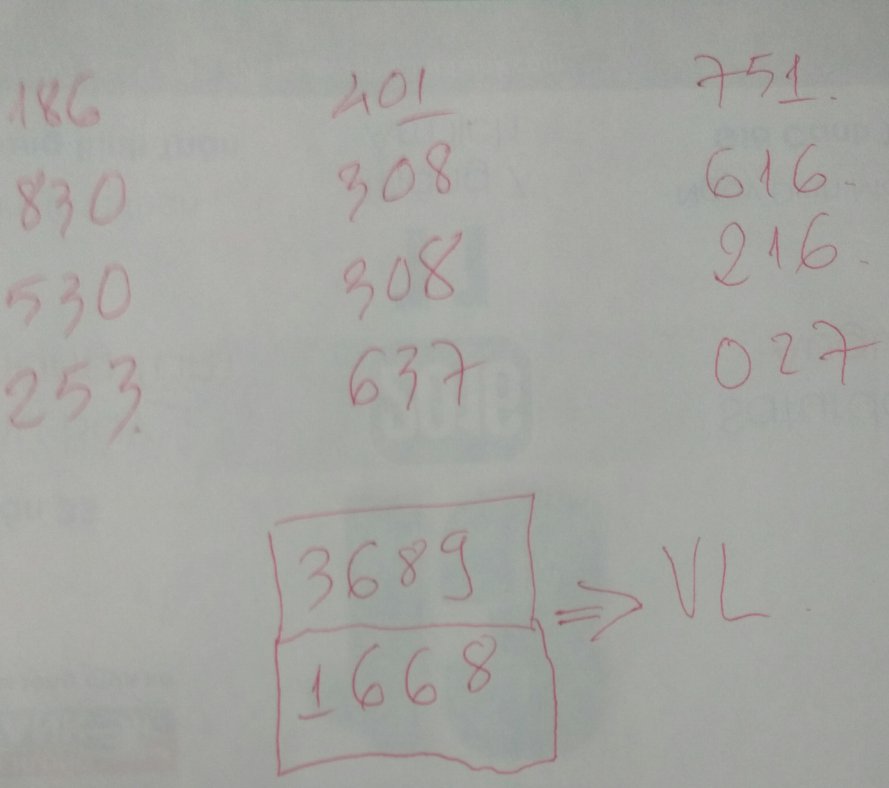 186 401 751.
830 308 616.
530 308 216.
253. 637 027
3689
1668 => VL